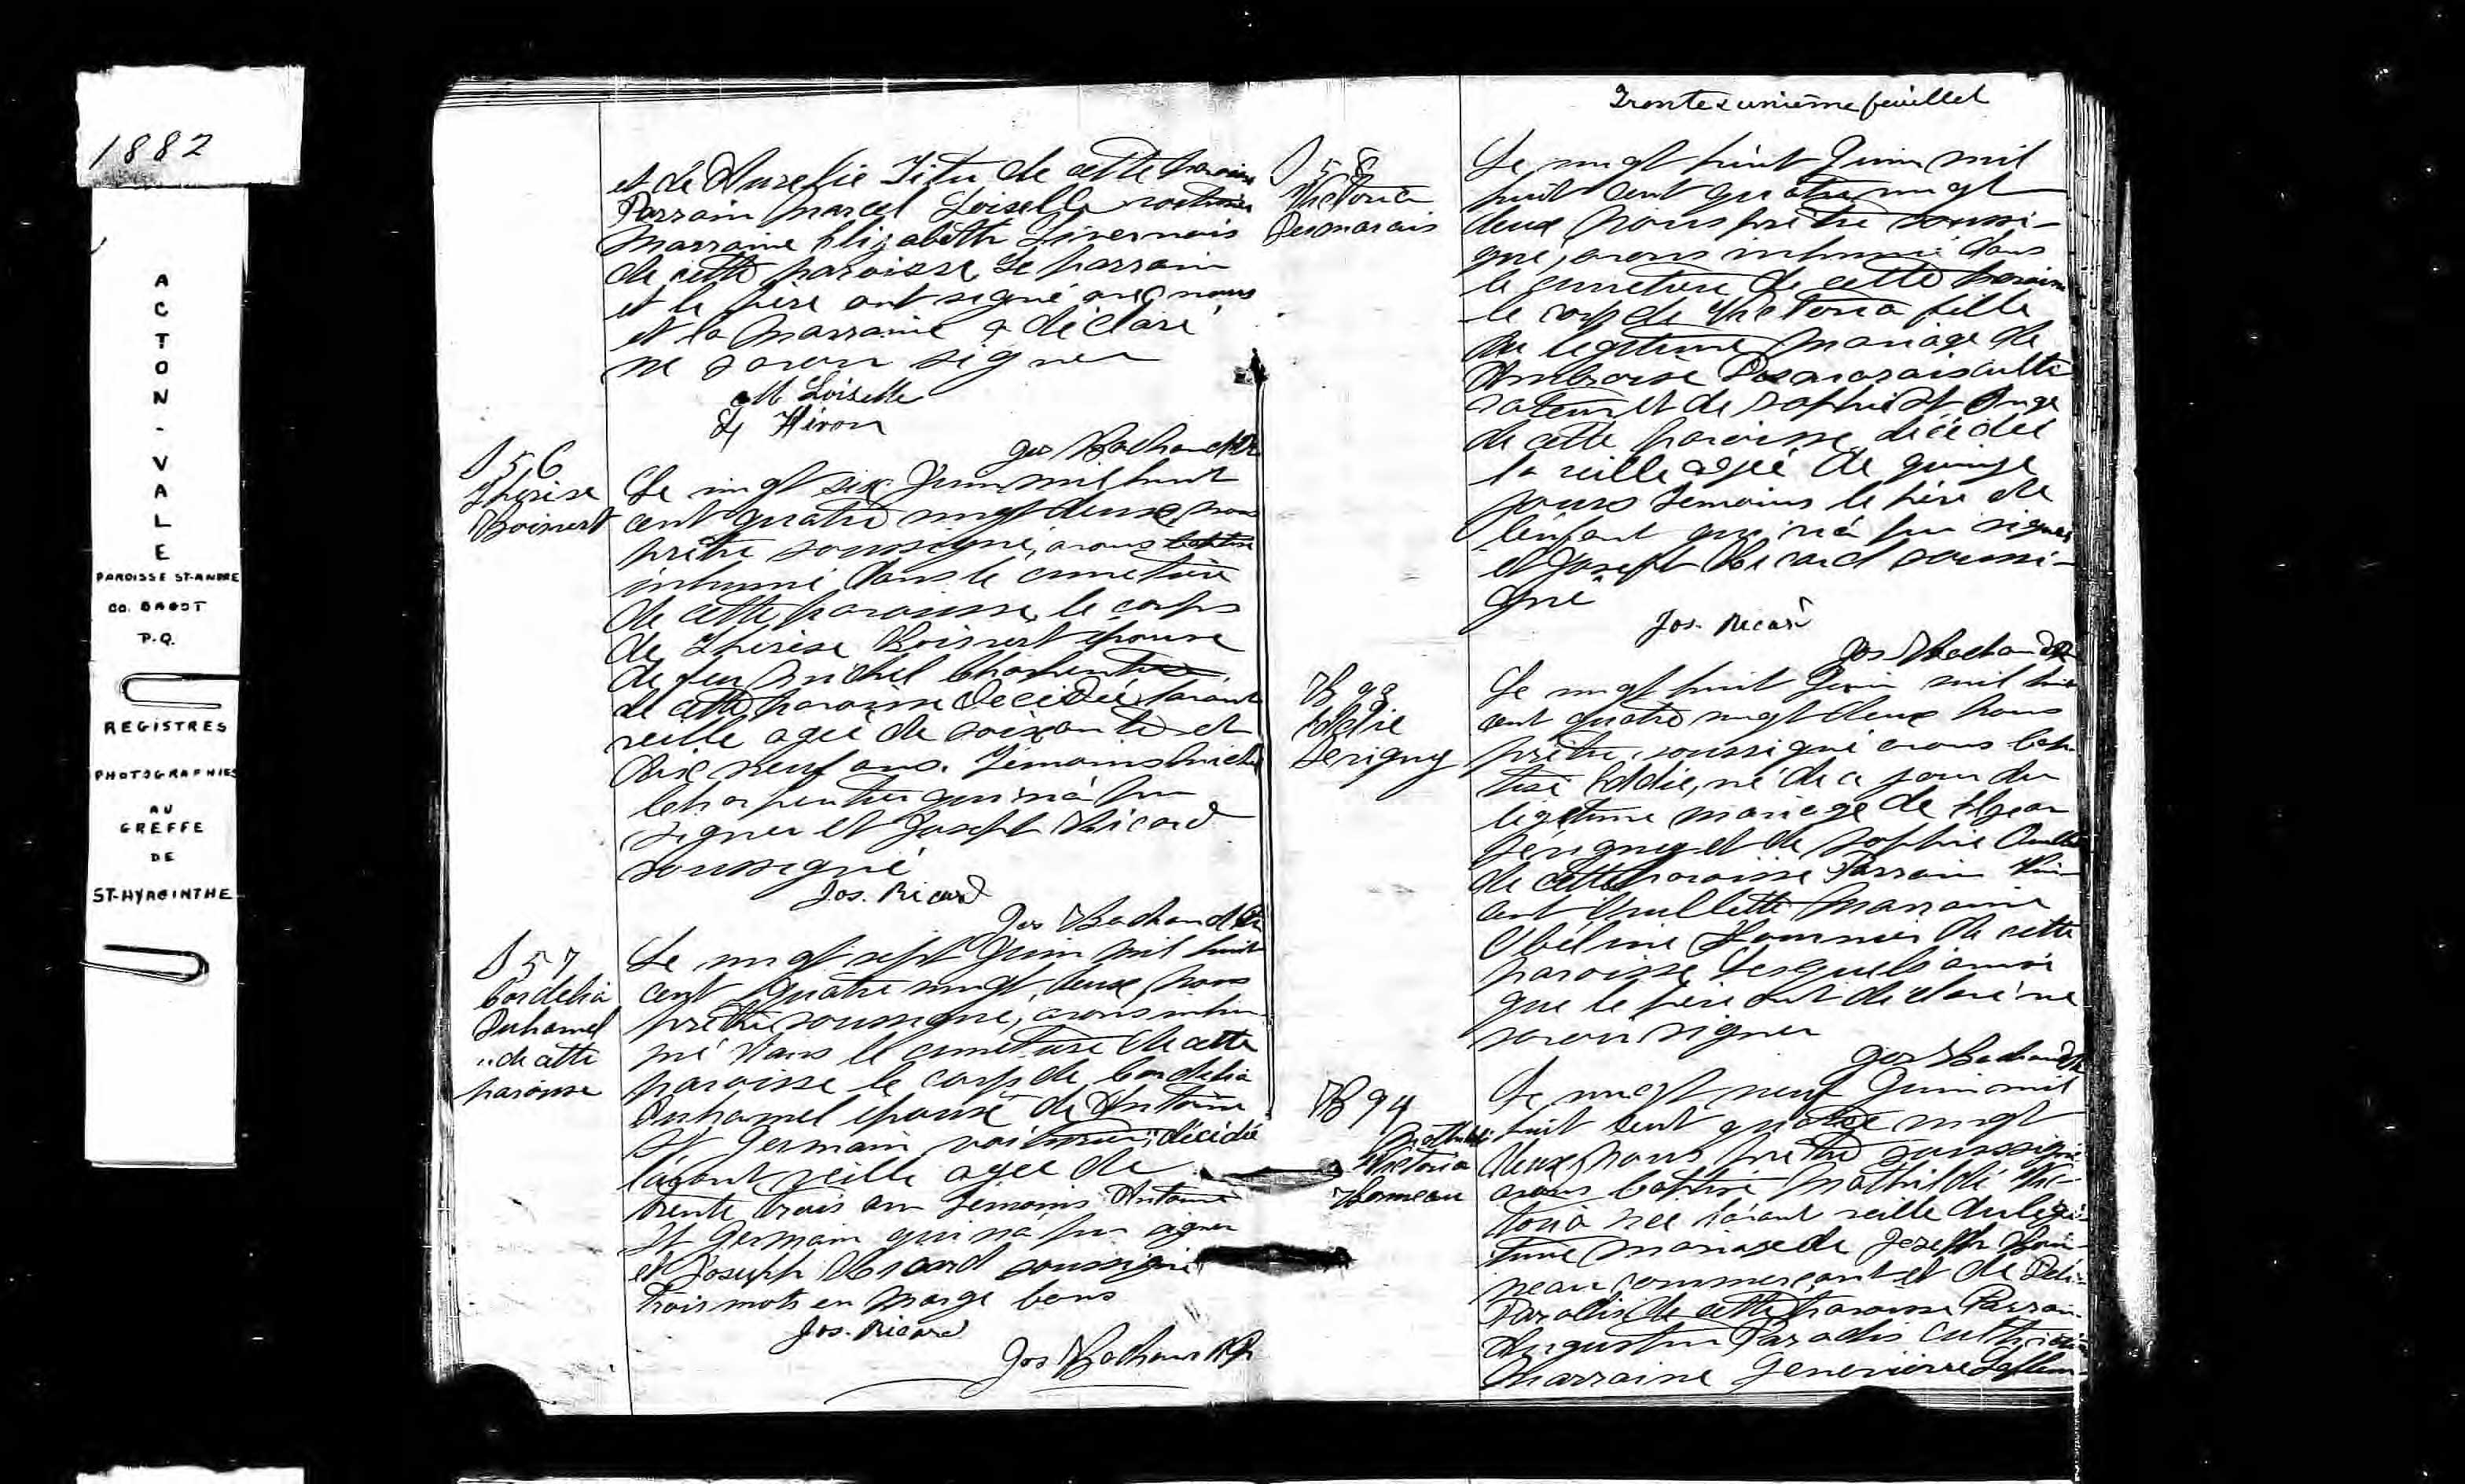 1882
ACTON-VALE
PAROISSE ST-ANDRE
CO. BAGOT
P.Q.
REGISTRES
PHOTOGRAPHIES
AU
GREFFE
DE
ST-HYACINTHE
et de Aurelie Titu de cette paroisse
Parrain Marcel Loiselle
Marraine Elizabeth Livernois
de cette paroisse. Le parrain
et le père ont signé avec nous
et la Marraine a déclaré
ne savoir signer
M Loiselle
Hivon
Jos Bachand Ptr
S 56
Thérèse
Boisvert
Le vingt six Juin mil huit
cent quatre vingt deux, nous
prêtre soussigné, avons
inhumé dans le cimetière
de cette paroisse, le corps
de Thérèse Boisvert épouse
de feu Michel Charpentier
de cette paroisse décédée l'avant
veille agée de soixante et
dix neuf ans. Témoins Michel
Charpentier qui n'a pu
signer et Joseph Ricard
soussigné
Jos. Ricard
Jos Bachand Ptr
S 57
Cordelia
Duhamel
"de cette
paroisse
Le vingt sept Juin mil huit
cent quatre vingt deux, nous
prêtre soussigné, avons inhu
mé dans le cimetière de cette
paroisse le corps de Cordelia
Duhamel épouse de Antoine
St Germain voiturier," décédée
l'avant veille agée de
trente trois ans Témoins Antoine
St Germain qui n'a pu signer
et Joseph Ricard soussigné
trois mots en marge bons
Jos. Ricard
Jos Bachand Ptr
Trente & unième feuillet
S 58
Victoria
Desmarais
Le vingt huit Juin mil
huit cent quatre vingt
deux Nous prêtre soussi-
gné, avons inhumé dans
le cimetière de cette paroisse
le corps de Victoria fille
du légitime mariage de
Ambroise Desmarais culti
vateur et de Sophie St Onge
de cette paroisse, décédée
la veille agée de quinze
jours Témoins le père de
l'enfant qui n'a pu signer
et Joseph Ricard soussi-
gné
Jos. Ricard
Jos Bachand Ptr
B 93
Eddie
Serigny
Le vingt huit Juin mil huit
cent quatre vingt deux Nous
prêtre, soussigné avons bap
tisé Eddie, né de ce jour du
légitime mariage de
Serigny et de Sophie
de cette paroisse Parrain Vin
cent Ouellette Marraine
de cette
paroisse Lesquels ainsi
que le père ont déclaré ne
savoir signer
Jos Bachand Ptr
B 94
Mathilde
Victoria
Le vingt neuf Juin mil
huit cent quatre vingt
deux, nous prêtre soussigné
avons baptisé Mathilde Vic-
toria née l'avant veille du légi-
time mariage de Joseph
neau commerçant et de
Paradis de cette paroisse Parrain
Augustin Paradis cultivateur
Marraine Genevieve